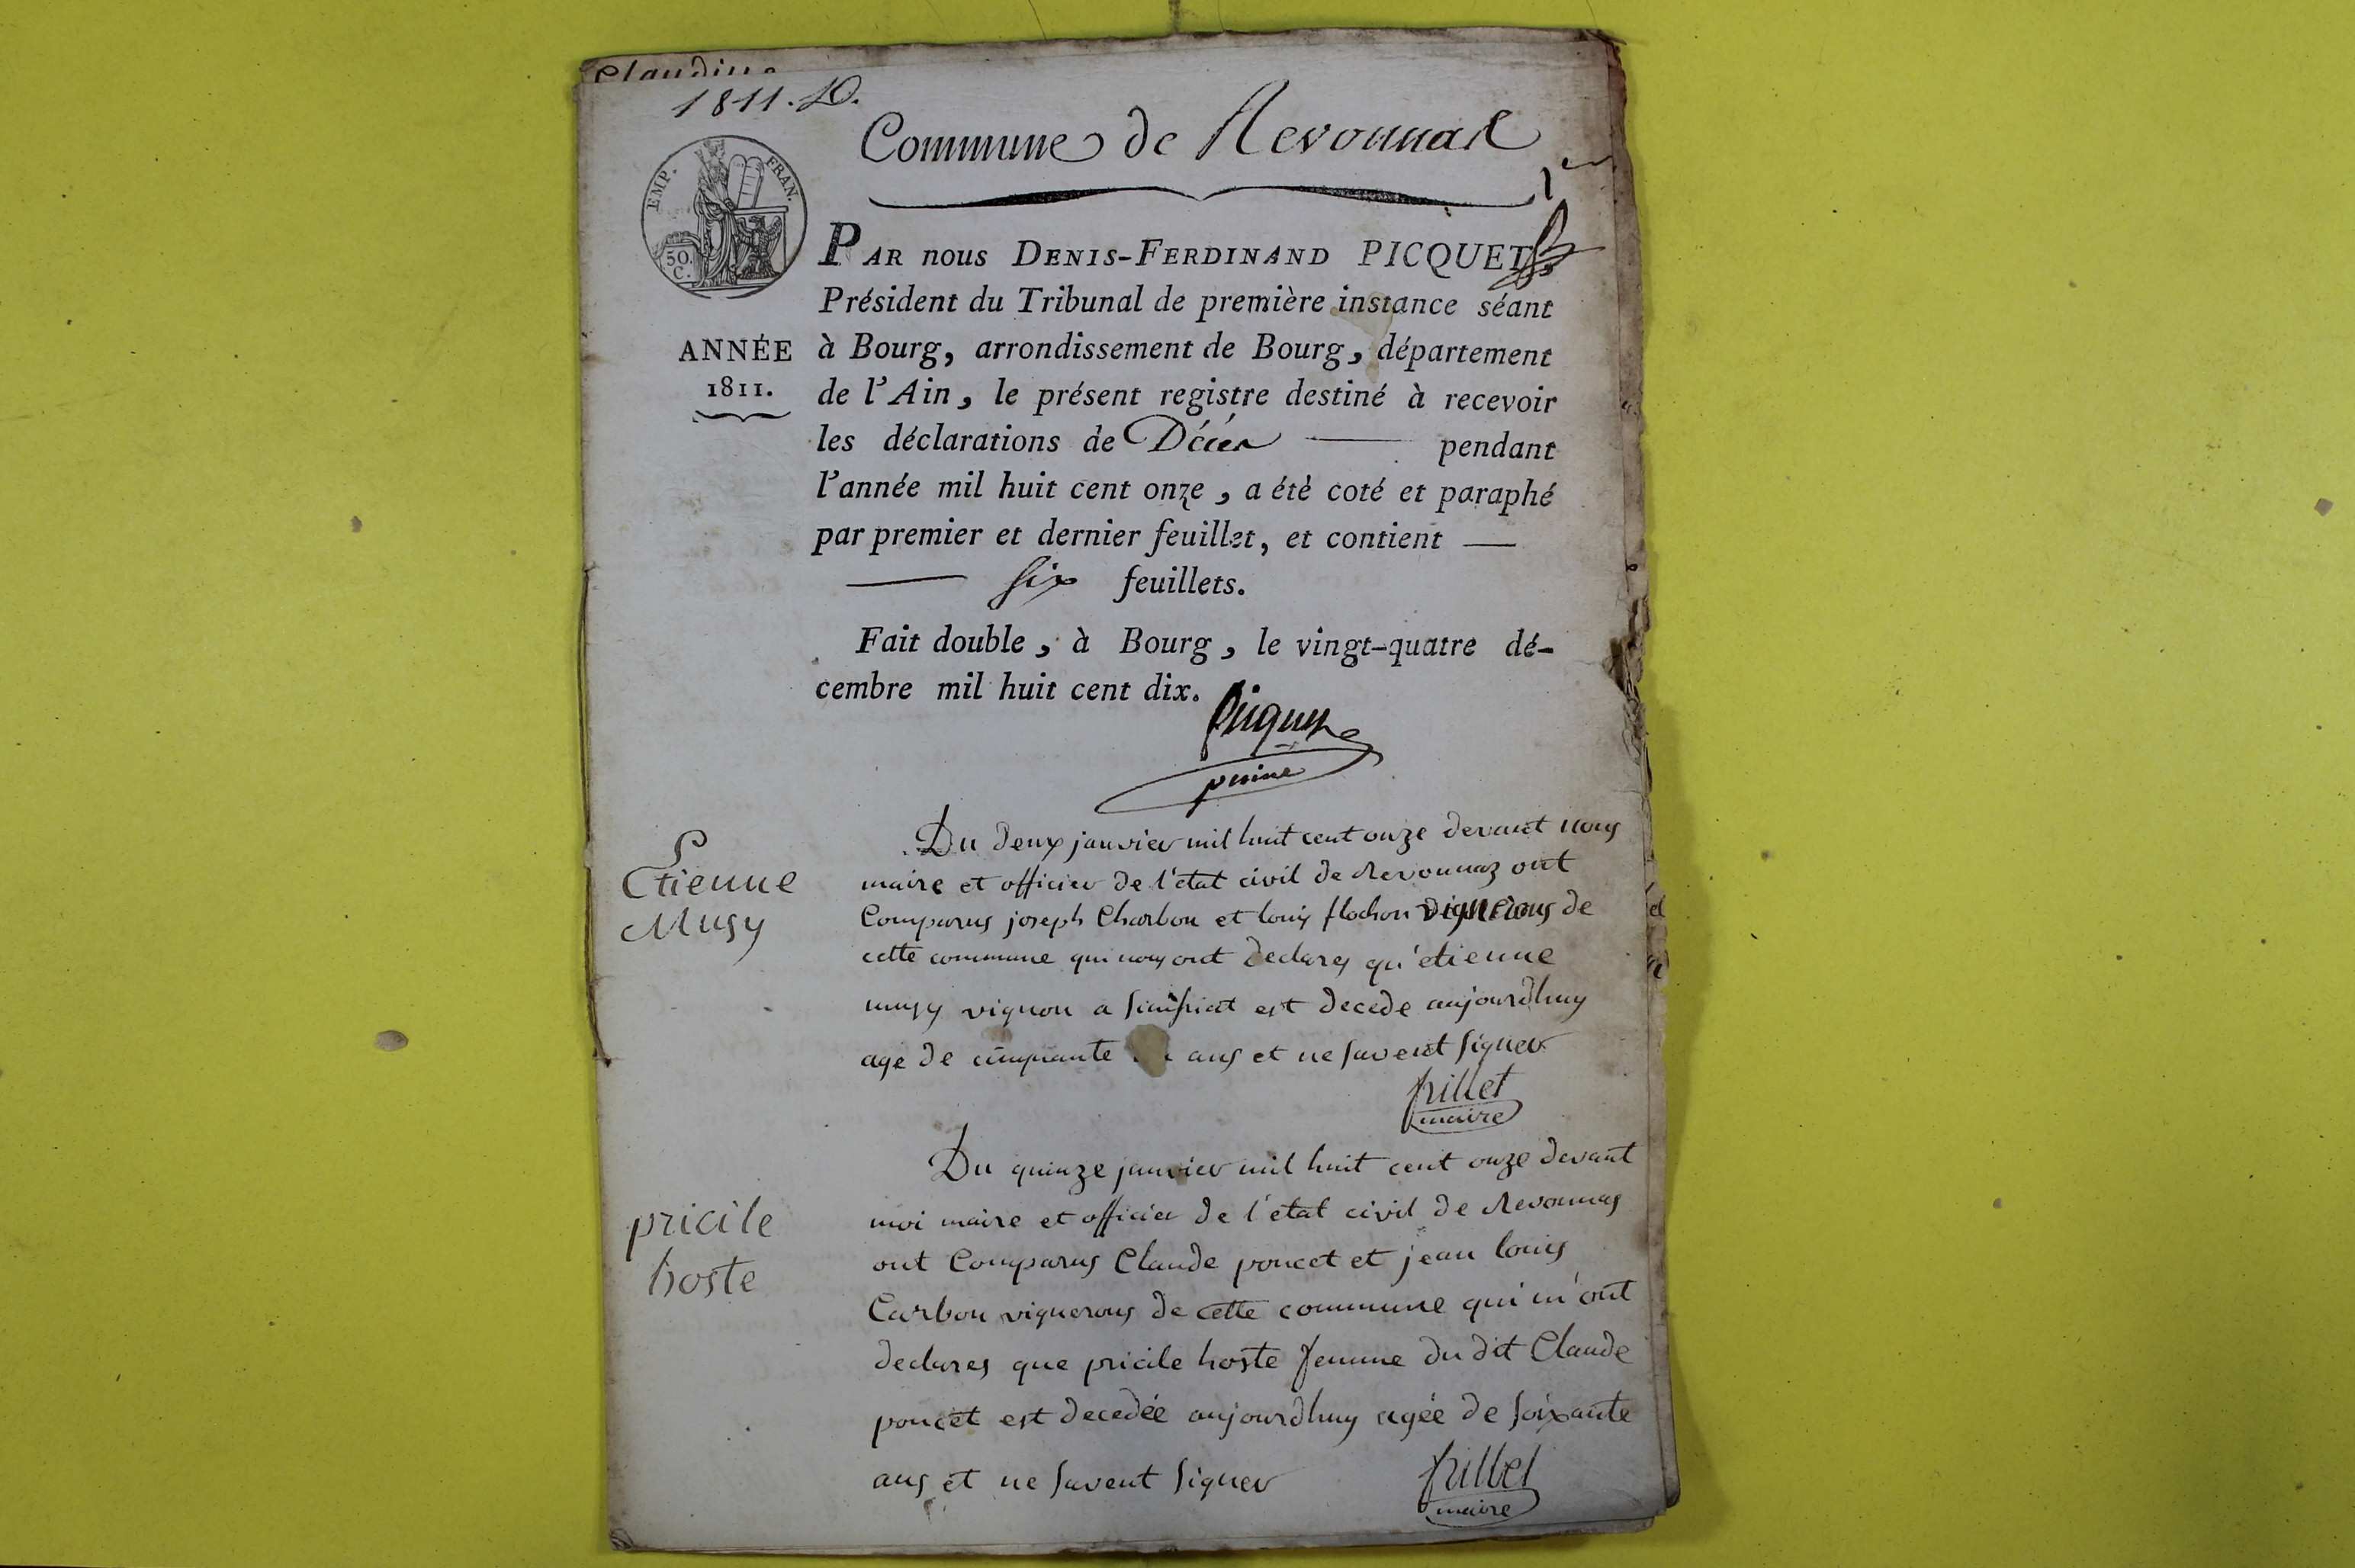 Claudine
1811. D.
Commune de Revonnas
1er
EMP. FRAN.
50.
C.
PAR nous DENIS-FERDINAND PICQUET
Président du Tribunal de première instance séant
ANNÉE
1811.
à Bourg, arrondissement de Bourg, département
de l'Ain, le présent registre destiné à recevoir
les déclarations de Décès pendant
l'année mil huit cent onze, a étè coté et paraphé
par premier et dernier feuillet, et contient —
— six feuillets.
Fait double, à Bourg, le vingt-quatre dé-
cembre mil huit cent dix.
Picquet
Etienne
Musy
Du deux janvier mil huit cent onze devant nous
maire et officier de l'etat civil de Revonnaz ont
Comparus joseph Charbon et louis flochon vignerons de
cette commune qui nous ont declares qu'etienne
musy vignon a est decede aujourdhuy
age de cinquante ans et ne savent signer
frillet
maire
pricile
hoste
Du quinze janvier mil huit cent onze devant
moi maire et officier de l'etat civil de Revonnas
ont Comparus Claude poncet et jean louis
Carbon vignerons de cette commune qui m'ont
declares que pricile hoste femme du dit Claude
poncet est decedée aujourdhuy agée de soixante
ans et ne savent signer
frillet
maire